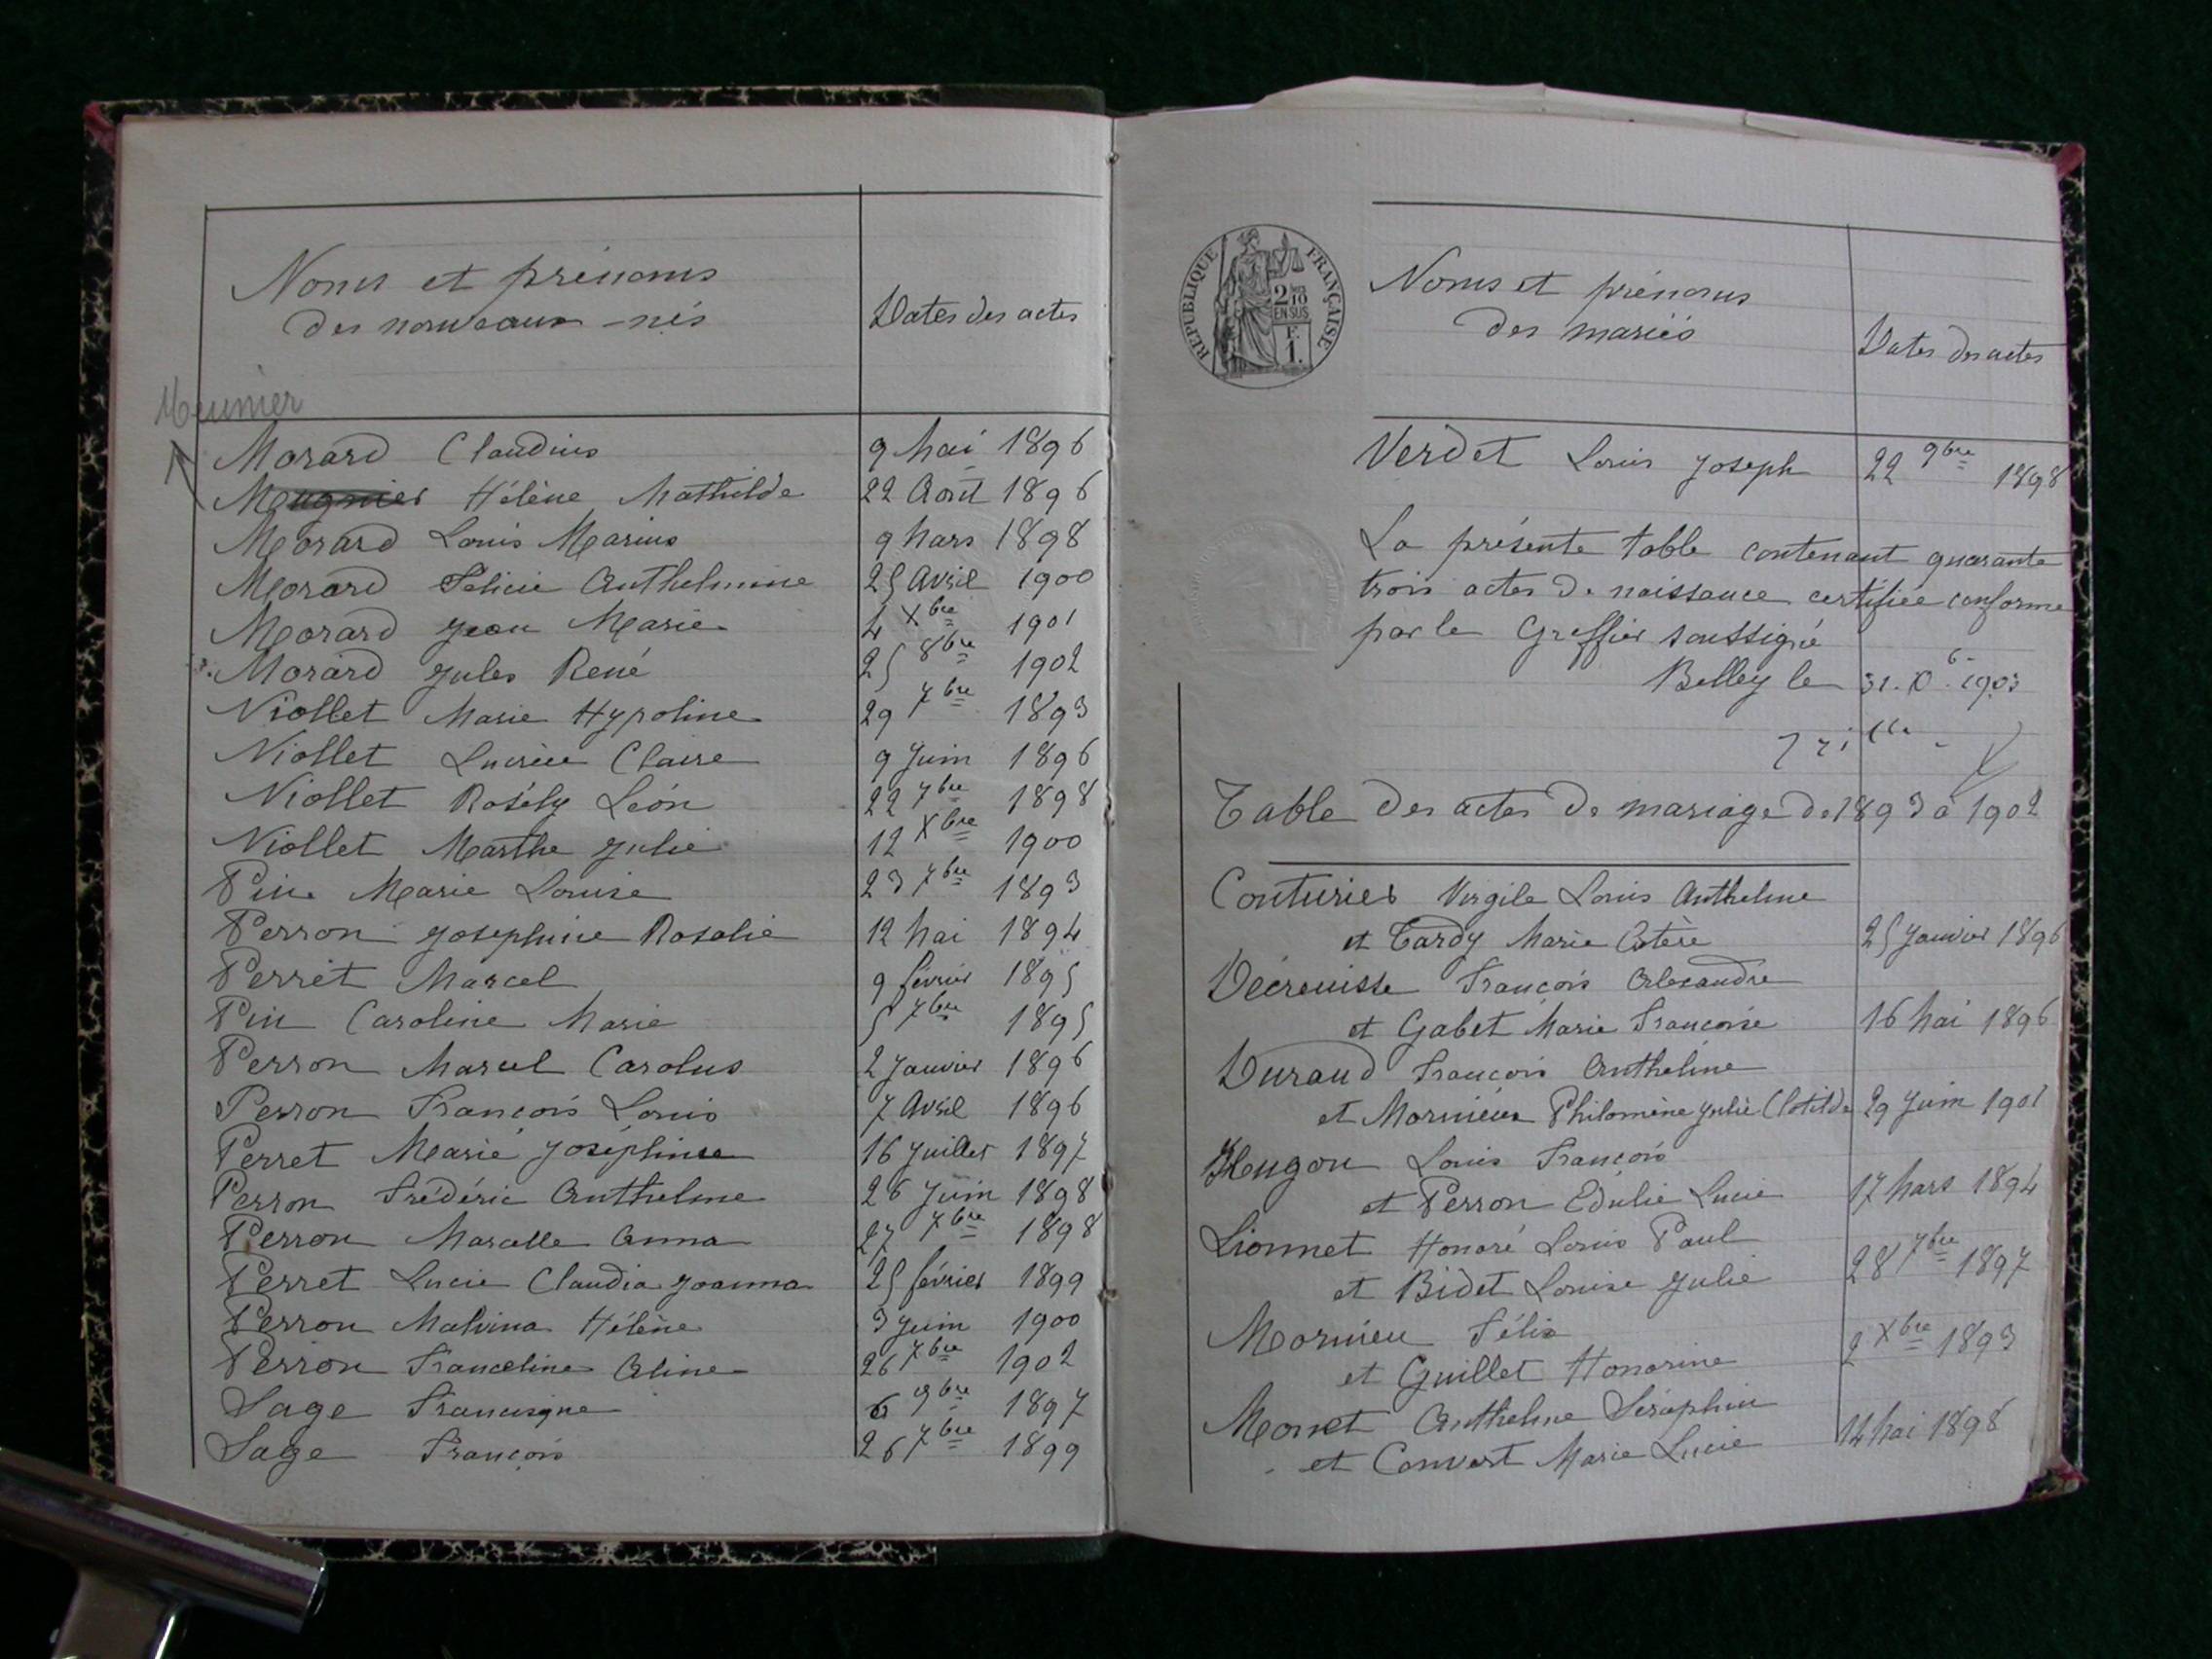 Noms et prénoms
des nouveaux-nés
Dates des actes
Meunier
Morard Claudius 9 Mai 1896
Meugnier Hélène Mathilde 22 Août 1896
Morard Louis Marius 9 Mars 1898
Morard Félicie Anthelmine 25 Avril 1900
Morard Jean Marie 4 Xbre 1901
Morard Jules René 25 8bre 1902
Niollet Marie Hypoline 29 7bre 1893
Niollet Lucrèce Claire 9 Juin 1896
Niollet Rosély Léon 22 7bre 1898
Niollet Marthe Julie 12 Xbre 1900
Pin Marie Louise 23 7bre 1893
Perron Joséphine Rosalie 12 Mai 1894
Perret Marcel 9 février 1895
Pin Caroline Marie 5 7bre 1895
Perron Marcel Carolus 2 Janvier 1896
Perron François Louis 7 Avril 1896
Perret Marie Joséphine 16 Juillet 1897
Perron Frédéric Anthelme 26 Juin 1898
Perron Marcelle Anna 27 7bre 1898
Perret Lucie Claudia Joanna 25 février 1899
Perron Malvina Hélène 3 Juin 1900
Perron Franceline Aline 26 7bre 1902
Sage Francisque 6 9bre 1897
Sage François 26 7bre 1899
REPUBLIQUE FRANÇAISE
2/10
EN SUS
F.
1.
Noms et prénoms
des mariés
Dates des actes
Verdet Louis Joseph 22 9bre 1898
La présente table contenant quarante
trois actes de naissance certifiée conforme
par le Greffier soussigné
Belley le 31. Xb. 1903
Table des actes de mariage de 1893 à 1902
Couturier Virgile Louis Anthelme
et Tardy Marie 25 Janvier 1896
Décreuisse François Alexandre
et Gabet Marie Françoise 16 Mai 1896
Durand François Anthelme
et Mornieux Philomène Julie Clotilde 29 Juin 1901
Hugon Louis François
et Perron Edulie Lucie 17 Mars 1894
Lionnet Honoré Louis Paul
et Bidet Louise Julie 28 7bre 1897
Mornieu Félix
et Guillet Honorine 2 Xbre 1893
Monet Anthelme Séraphin
et Convert Marie Lucie 14 Mai 1898